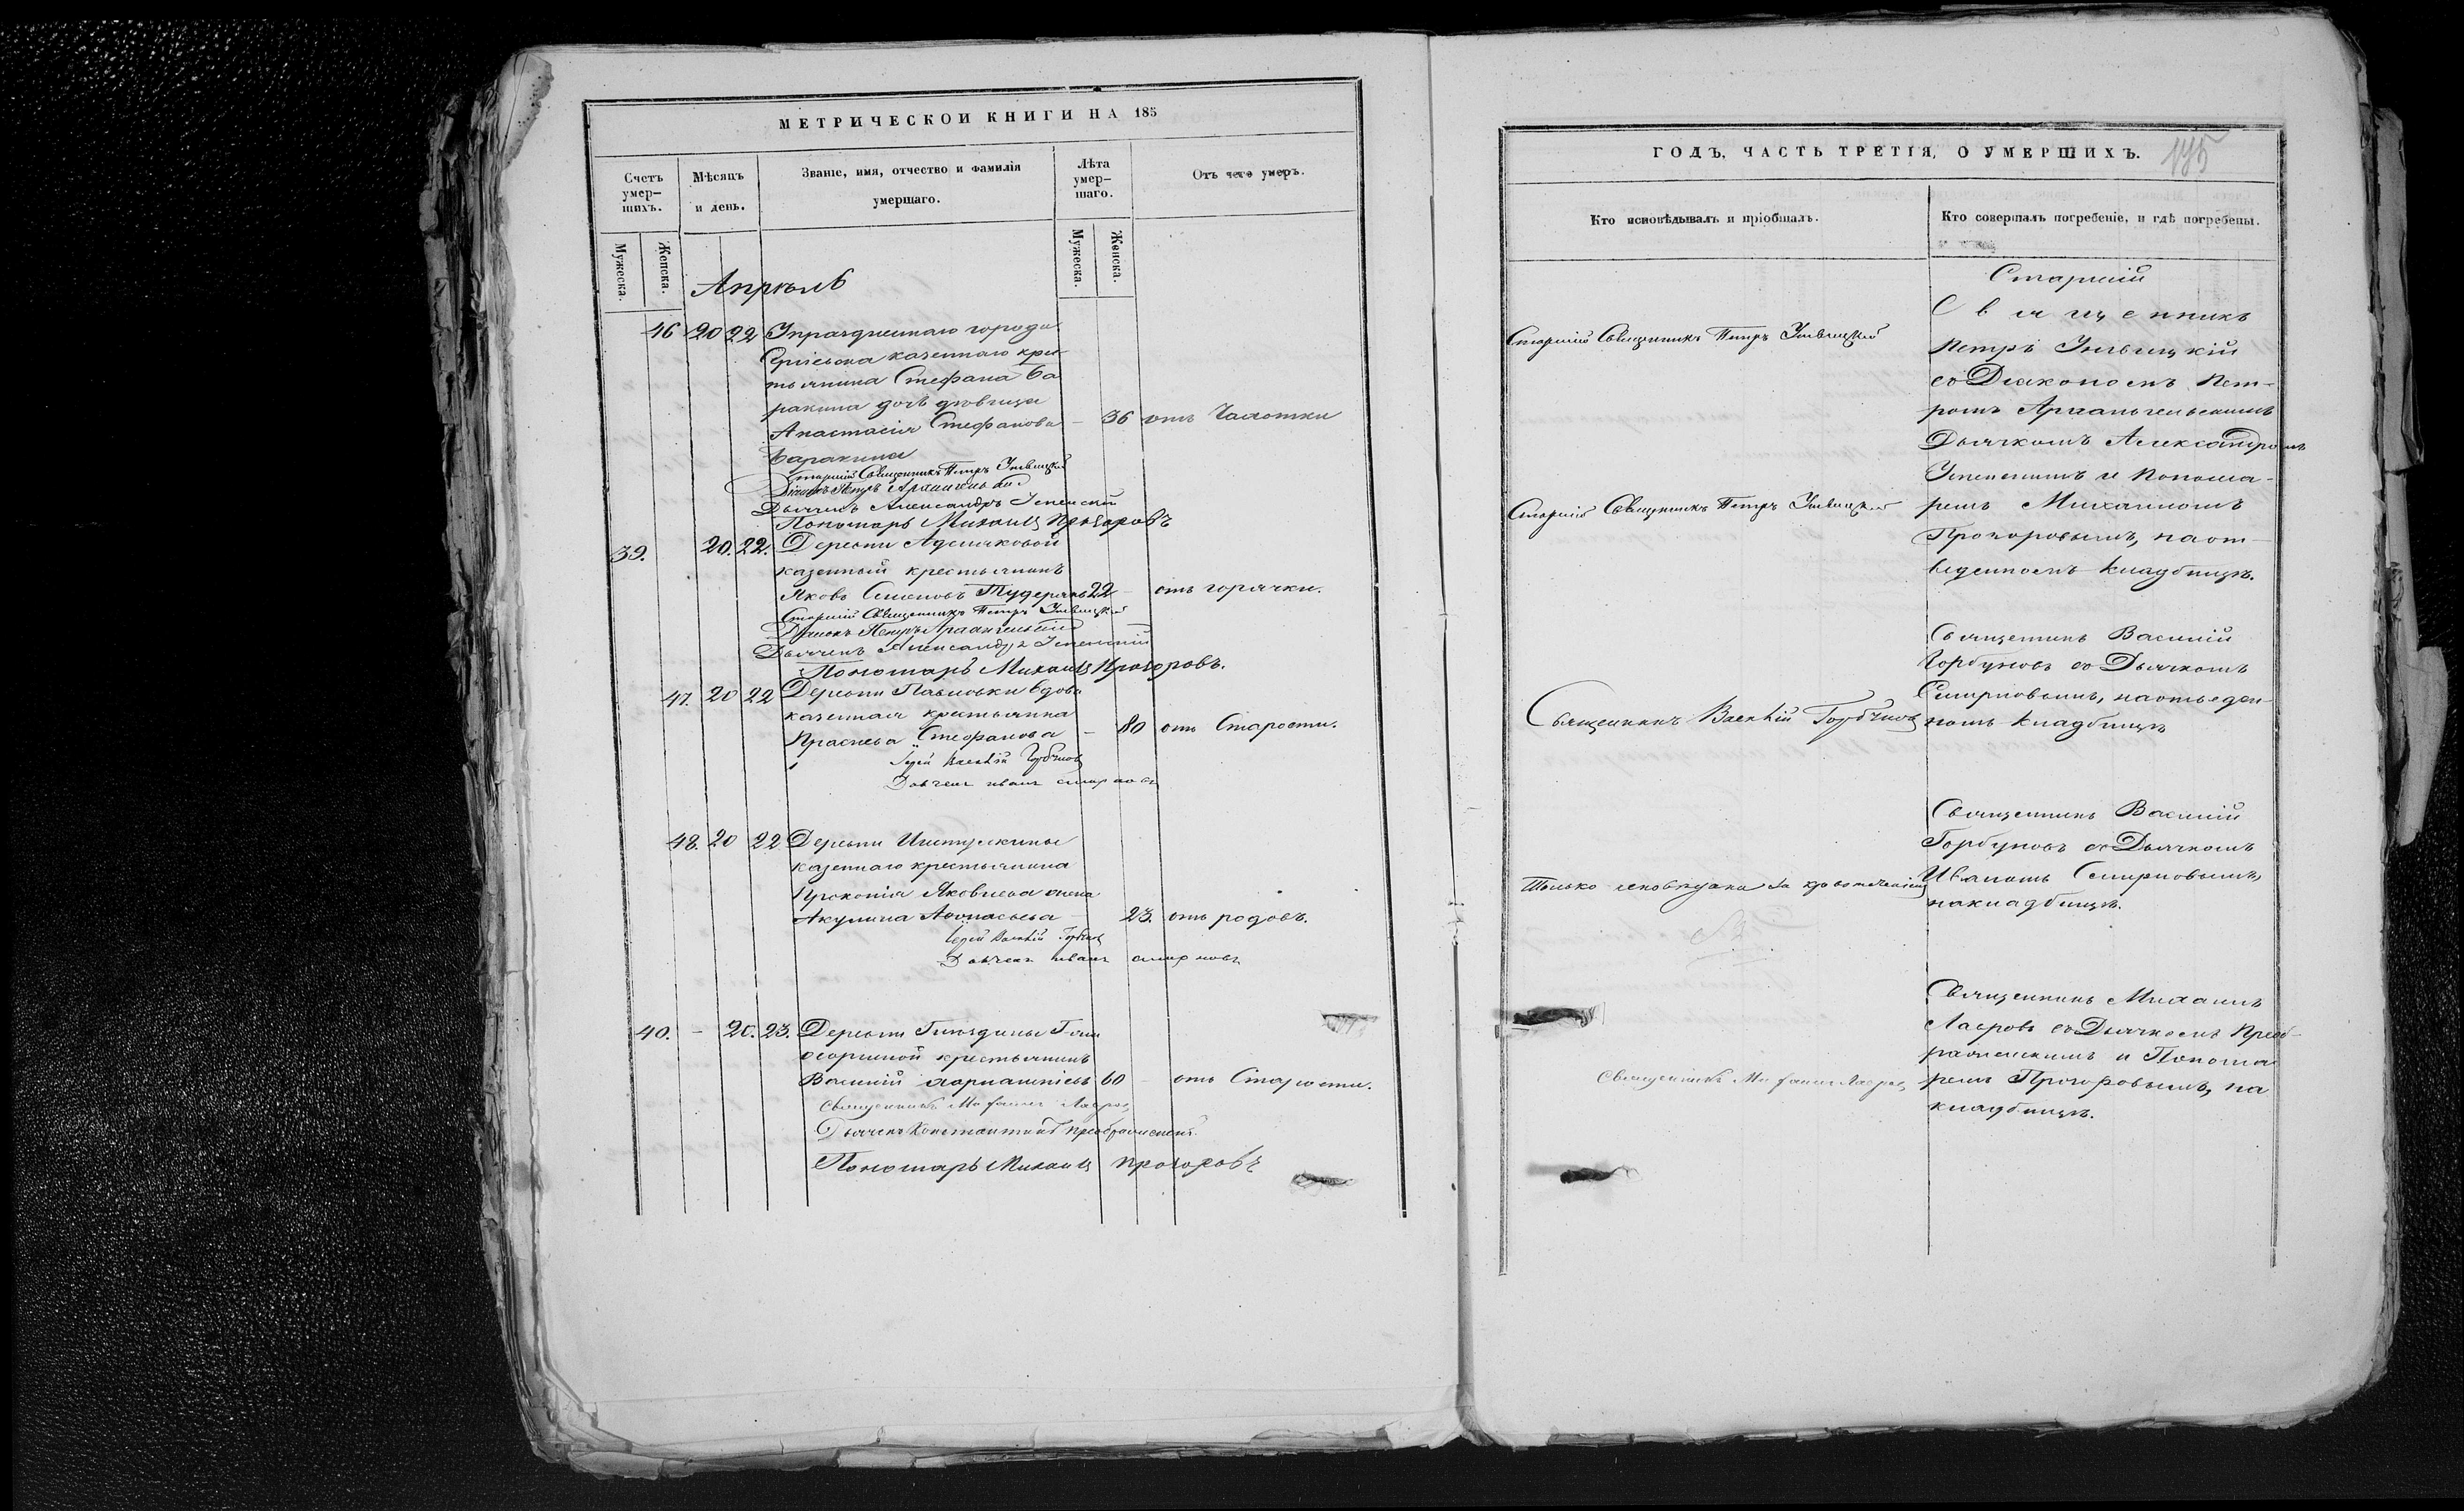 МЕТРИЧЕСКОЙ КНИГИ НА 185
Счетъ умер-шихъ.
Мѣсяцъ и день.
Званіе, имя, отчество и фамилія умершаго.
Лѣта умер-шаго.
Отъ чего умеръ.
Мужеска.
Женска.
Мужеска.
Женска.
Апрѣль
46 20 22 Упразднённаго города
Сергіевска казеннаго кре-
стьянина Стефана Ба
ракина дочь дѣвица
Анастасія Стефанова — 36 отъ Чахотки
Баракина
Старшій Священникъ Петръ
Діаконъ Петръ Архангельскій
Дьячекъ Александръ Успенскій
Пономарь Михаилъ Прохоровъ
39. 20. 22. Деревни Аделяковой
казенный крестьянинъ
Яковъ Семеновъ 22 — отъ горячки.
Старшій Священникъ Петръ
Діаконъ Петръ Архангельскій
Дьячекъ Александръ Успенскій
Пономарь Михаилъ Прохоровъ.
47. 20 22 Деревни Павловки вдова
казенная крестьянка
Праскева Стефанова — 80 отъ Старости.
Іерей Василій Горбуновъ
Дьячекъ Иванъ Смирновъ
48. 20 22 Деревни
казеннаго крестьянина
Прокопія Яковлева жена
Акулина Аѳонасьева — 23. отъ родовъ.
Іерей Василій Горбуновъ
Дьячекъ Иванъ Смирновъ
40. — 20. 23. Деревни
крестьянинъ
Василій 60 — отъ Старости.
Священникъ Михаилъ Лавровъ
Дьячекъ Константинъ Преображенскій
Пономарь Михаилъ Прохоровъ
ГОДЪ, ЧАСТЬ ТРЕТІЯ, О УМЕРШИХЪ.
195
Кто исповѣдывалъ и пріобщалъ.
Кто совершалъ погребеніе, и гдѣ погребены.
Старшій Священникъ Петръ
Старшій Священникъ Петръ
Священникъ Василій Горбуновъ
Только исповѣдана за кровотеченіемъ
Священникъ Михаилъ Лавровъ
Старшій
Священникъ
Петръ
со Діакономъ Пет-
ромъ Архангельскимъ
Дьячкомъ Александромъ
Успенскимъ и Понома-
ремъ Михаиломъ
Прохоровымъ, на от-
веденномъ кладбищѣ.
Священникъ Василій
Горбуновъ со Дьячкомъ
Смирновымъ, на отведен-
номъ кладбищѣ
Священникъ Василій
Горбуновъ со Дьячкомъ
Иваномъ Смирновымъ,
на кладбищѣ.
Священникъ Михаилъ
Лавровъ со Дьячкомъ Преоб-
раженскимъ и Понома
ремъ Прохоровымъ, на
кладбищѣ.